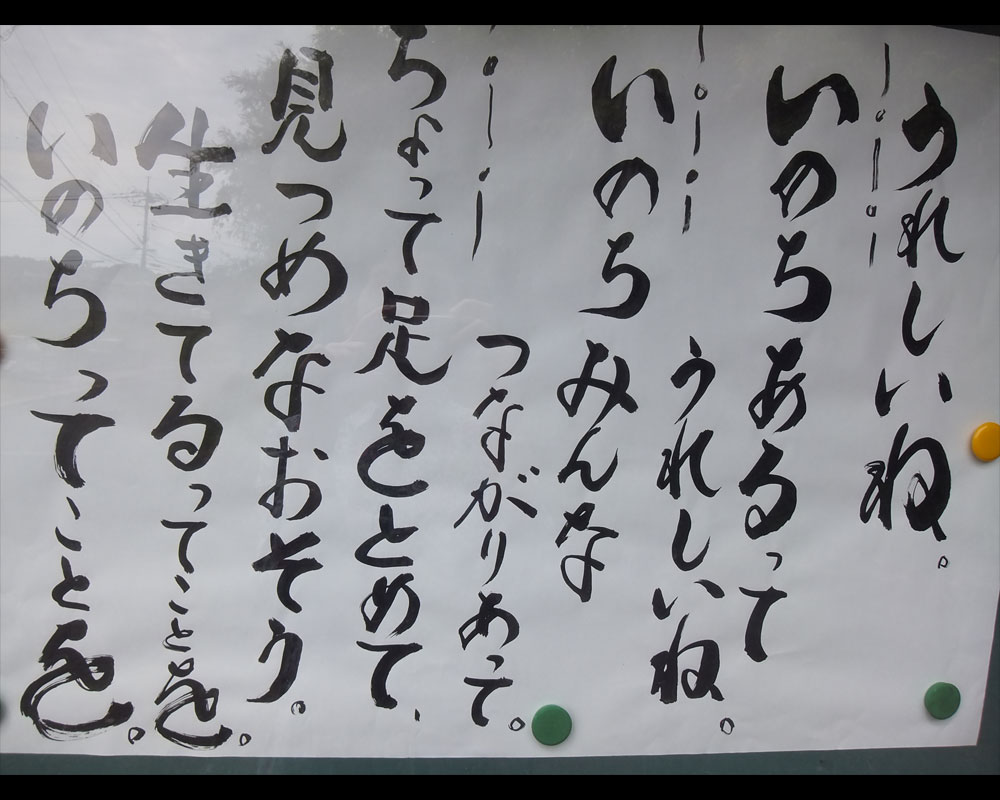 うれしいね。
いのちあるって
うれしいね。
いのちみんな
つながりあって。
ちょって足をとめて、
見つめなおそう。
生きてるってことを。
いのちってことを。